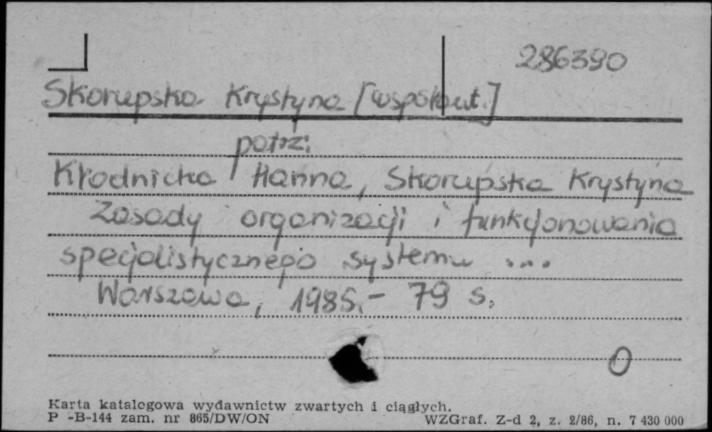 286390
Skorupska Krystyna [współaut.]
patrz:
Kłodnicka Hanna, Skorupska Krystyna
Zasady organizacji i funkcjonowania
specjalistycznego systemu ...
Warszawa, 1985.- 79 s.
O
Karta katalogowa wydawnictw zwartych i ciągłych.
P -B-144 zam. nr 865/DW/ON WZGraf. Z-d 2, z. 2/86, n. 7 430 000